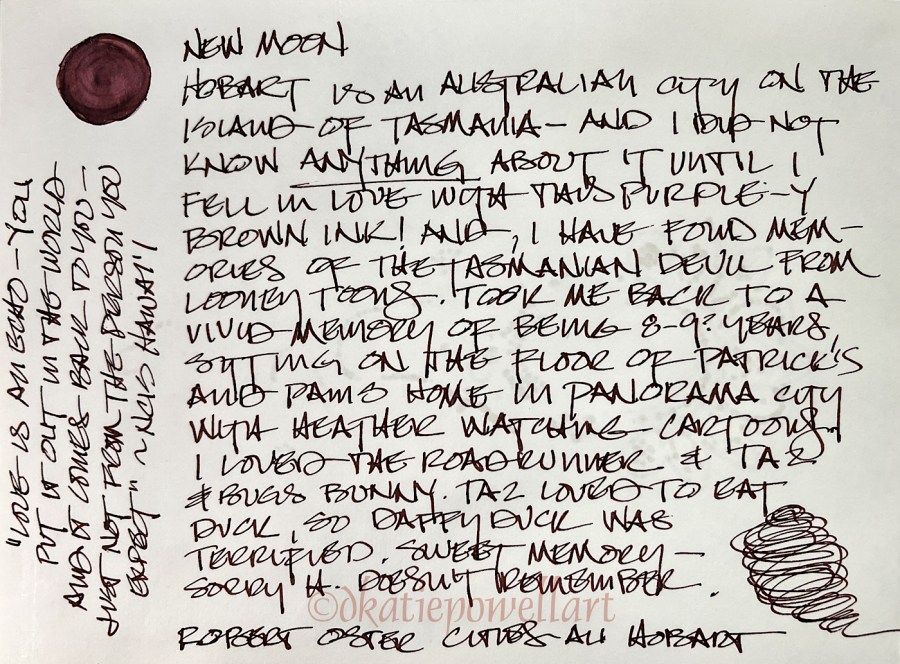 NEW MOON
HOBART IS AN AUSTRALIAN CITY ON THE
ISLAND OF TASMANIA - AND I DID NOT
KNOW ANYTHING ABOUT IT UNTIL I
FELL IN LOVE WITH THIS PURPLE-Y
BROWN INK! AND, I HAVE FOND MEM-
ORIES OF THE TASMANIAN DEVIL FROM
LOONEY TOONS. TOOK ME BACK TO A
VIVID MEMORY OF BEING 8-9? YEARS,
SITTING ON THE FLOOR OF PATRICK'S
AND PAMS HOME IN PANORAMA CITY
WITH HEATHER WATCHING CARTOONS.
I LOVED THE ROADRUNNER & TAZ
& BUGS BUNNY. TAZ LOVED TO EAT
DUCK, SO DAFFY DUCK WAS
TERRIFIED. SWEET MEMORY -
SORRY H. DOESN'T REMEMBER.
©dkatiepowellart
ROBERT OSTER CITIES AU HOBART
"LOVE IS AN ECHO - YOU
PUT IT OUT IN THE WORLD
AND IT COMES BACK TO YOU -
JUST NOT FROM THE PERSON YOU
EXPECT" ~ NCIS HAWAI'I